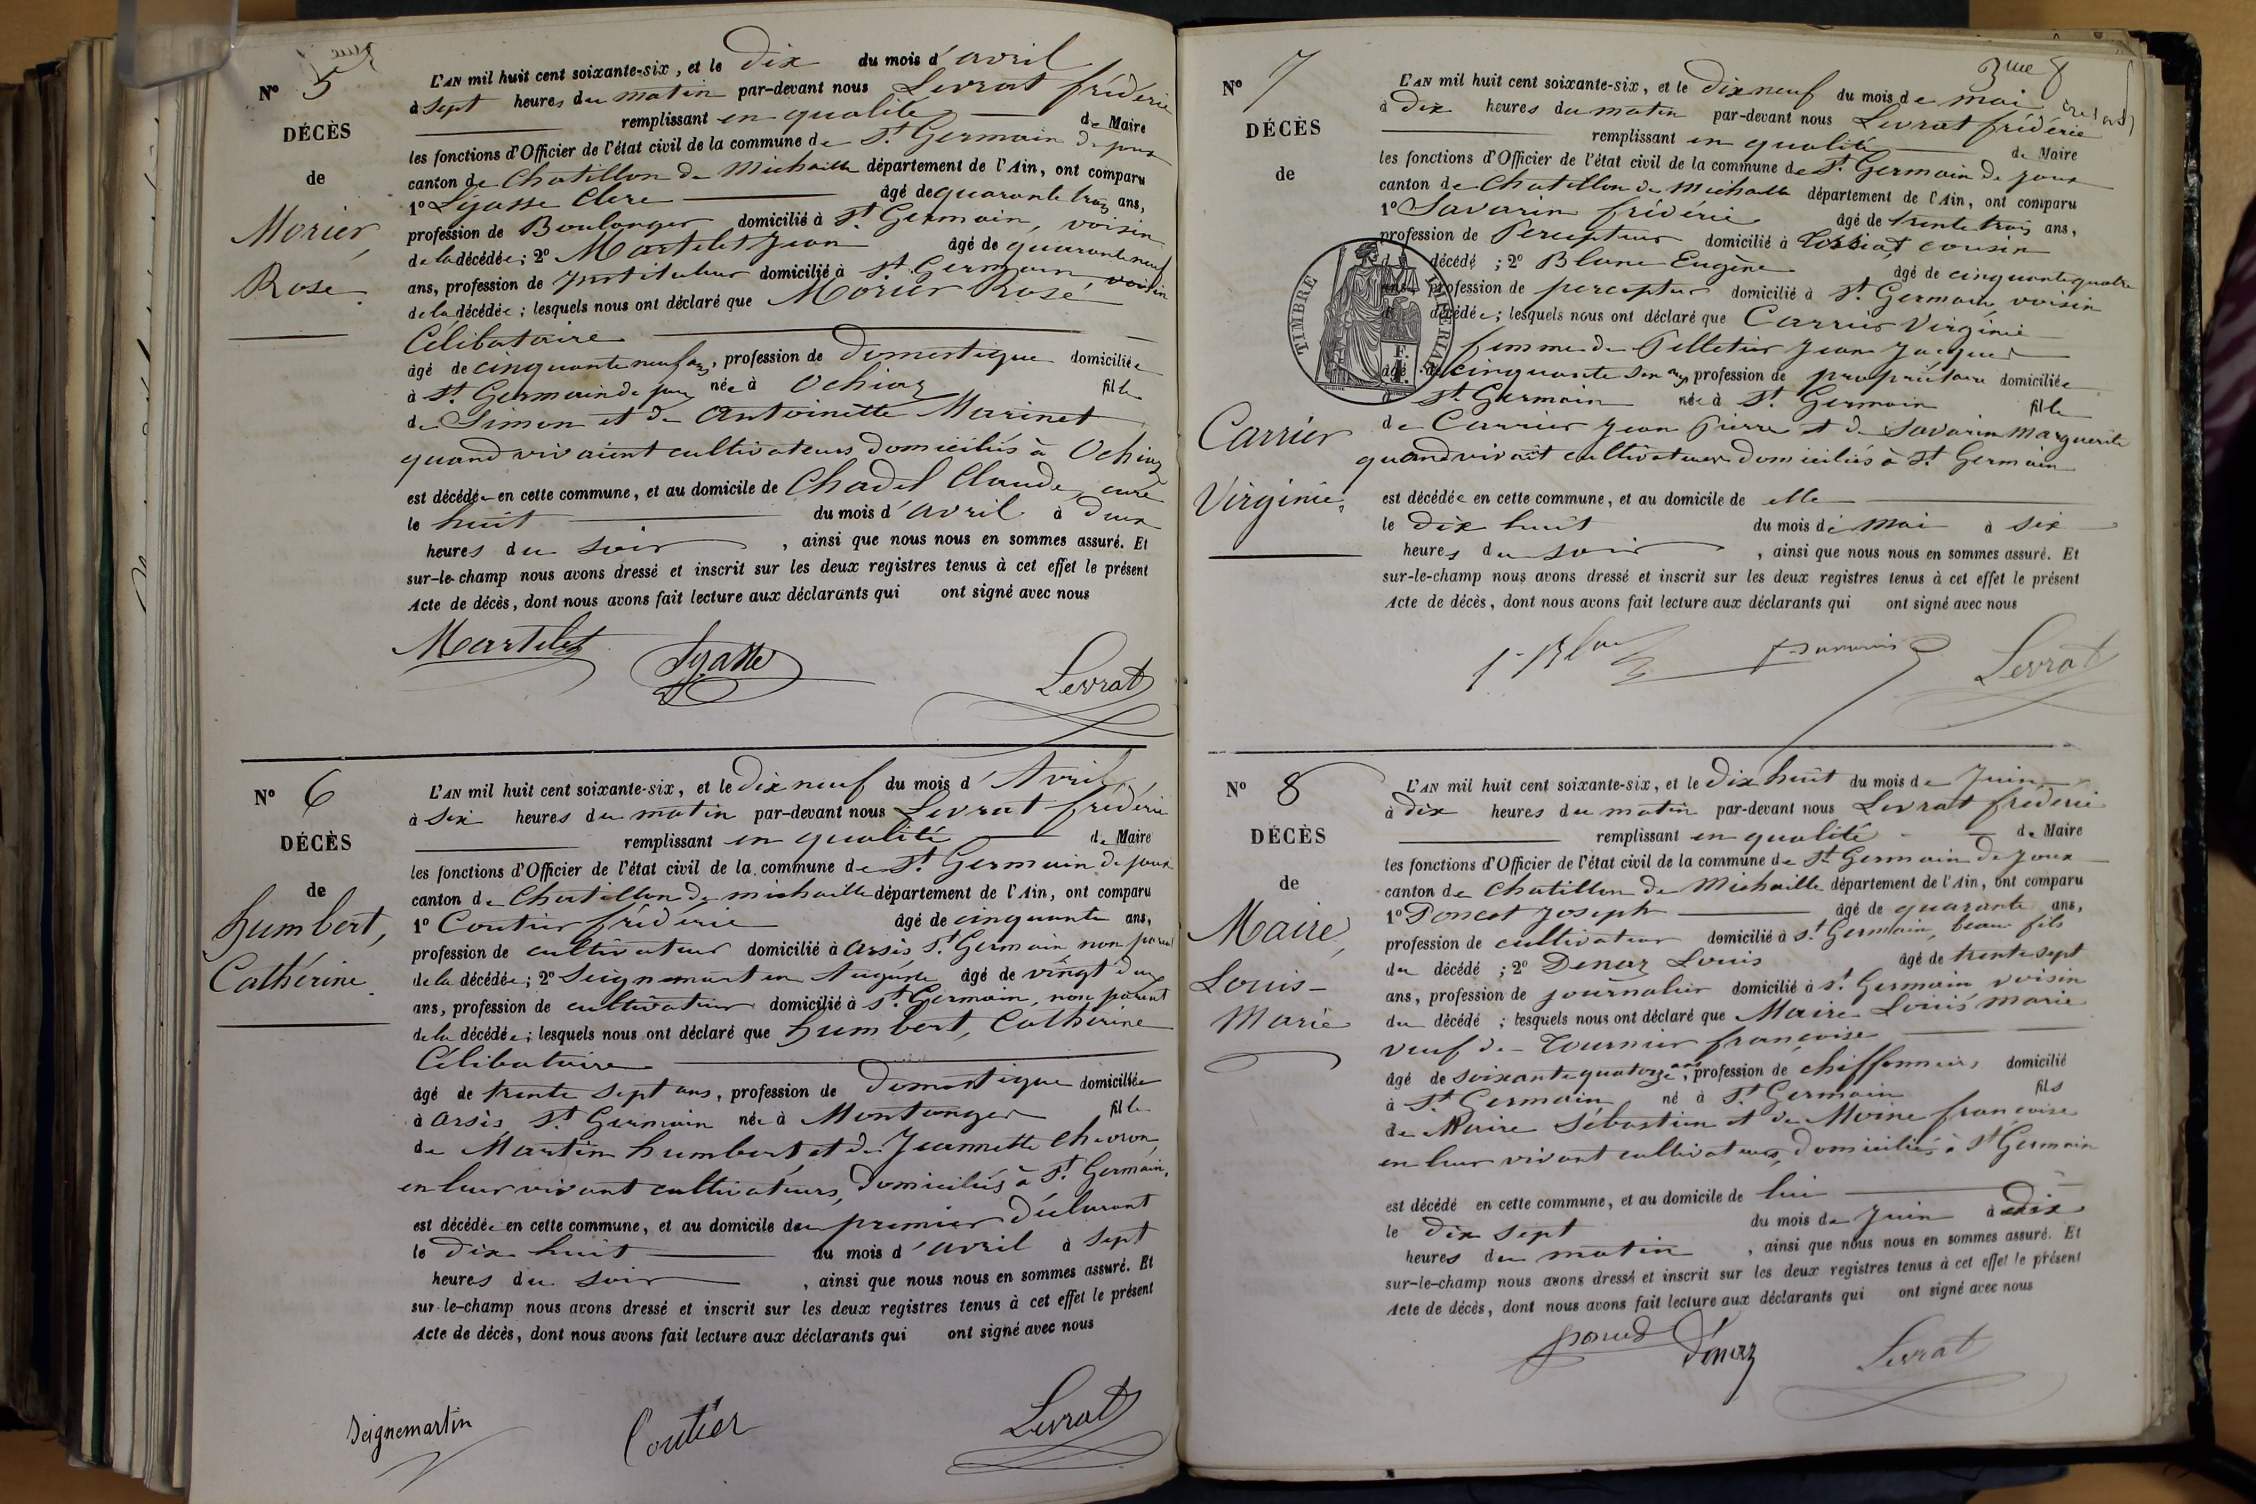 Nº 5
DÉCÈS
de
Morier,
Rose.
L'AN mil huit cent soixante-six, et le Dix du mois d'avril
à Sept heures du matin par-devant nous Levrat frédéric
remplissant en qualité de Maire
les fonctions d'Officier de l'état civil de la commune de St Germain de joux
canton de Chatillon de Michaille département de l'Ain, ont comparu
1º Lyasse Clere âgé de quarante trois ans,
profession de Boulanger domicilié à St Germain, voisin
de la décédée; 2º Martelet Jean âgé de quarante neuf
ans, profession de Instituteur domicilié à St Germain voisin
de la décédée; lesquels nous ont déclaré que Morier Rose
Célibataire
âgé de cinquante neuf ans, profession de Domestique domiciliée
à St Germain de joux née à Ochiaz fille
de Simon et de Antoinette Marinet
quand vivaient cultivateurs domiciliés à Ochiaz
est décédée en cette commune, et au domicile de Chadel Claude, curé
le huit du mois d'avril à Deux
heures du soir, ainsi que nous nous en sommes assuré. Et
sur-le-champ nous avons dressé et inscrit sur les deux registres tenus à cet effet le présent
Acte de décès, dont nous avons fait lecture aux déclarants qui ont signé avec nous
Martelet Lyasse Levrat
Nº 6
DÉCÈS
de
humbert,
Cathérine.
L'AN mil huit cent soixante-six, et le Dix neuf du mois d'Avril
à Six heures du matin par-devant nous Levrat frédéric
remplissant en qualité de Maire
les fonctions d'Officier de l'état civil de la commune de St Germain de joux
canton de Chatillon de michaille département de l'Ain, ont comparu
1º Coutier frédéric âgé de cinquante ans,
profession de cultivateur domicilié à arsis St Germain non parent
de la décédée; 2º Seignemartin Auguste âgé de vingt deux
ans, profession de cultivateur domicilié à St Germain, non parent
de la décédée; lesquels nous ont déclaré que humbert, Cathérine
Célibataire
âgé de trente sept ans, profession de Domestique domiciliée
à arsis, St Germain née à Montanges fille
de Martin humbert et de Jeannette Chevron,
en leur vivant cultivateurs, domiciliés à St Germain,
est décédée en cette commune, et au domicile du premier déclarant
le Dix huit du mois d'avril à Sept
heures du soir, ainsi que nous nous en sommes assuré. Et
sur-le-champ nous avons dressé et inscrit sur les deux registres tenus à cet effet le présent
Acte de décès, dont nous avons fait lecture aux déclarants qui ont signé avec nous
Seignemartin Coutier Levrat
3me f
Nº 7
DÉCÈS
de
Carrier
Virginie.
TIMBRE IMPERIAL
L'AN mil huit cent soixante-six, et le Dix neuf du mois de mai
à Dix heures du matin par-devant nous Levrat frédéric
remplissant en qualité de Maire
les fonctions d'Officier de l'état civil de la commune de St Germain de joux
canton de Chatillon de Michaille département de l'Ain, ont comparu
1º Savarin frédéric âgé de trente trois ans,
profession de Percepteur domicilié à cousin
d décédé; 2º Blanc Eugène âgé de cinquante quatre
ans, profession de percepteur domicilié à St Germain voisin
d décédée; lesquels nous ont déclaré que Carrier Virginie
femme de Pelletier Jean Jacques
âgé de cinquante six ans profession de propriétaire domiciliée
à St Germain née à St Germain fille
de Carrier Jean Pierre et de Savarin Marguerite
quand vivait cultivateurs domiciliés à St Germain
est décédée en cette commune, et au domicile de elle
le Dix huit du mois de Mai à six
heures du soir, ainsi que nous nous en sommes assuré. Et
sur-le-champ nous avons dressé et inscrit sur les deux registres tenus à cet effet le présent
Acte de décès, dont nous avons fait lecture aux déclarants qui ont signé avec nous
Levrat
Nº 8
DÉCÈS
de
Maire,
Louis-
Marie
L'AN mil huit cent soixante-six, et le Dix huit du mois de Juin
à Dix heures du matin par-devant nous Levrat frédéric
remplissant en qualité de Maire
les fonctions d'Officier de l'état civil de la commune de St Germain de Joux
canton de Chatillon de Michaille département de l'Ain, ont comparu
1º Poncet Joseph âgé de quarante ans,
profession de cultivateur domicilié à St Germain, beau fils
du décédé; 2º Denaz Louis âgé de trente sept
ans, profession de journalier domicilié à St Germain voisin
du décédé; lesquels nous ont déclaré que Maire Louis Marie
veuf de Tournier françoise
âgé de soixante quatorze ans, profession de chiffonnier domicilié
à St Germain né à St Germain fils
de Maire Sébastien et de Moine françoise
en leur vivant cultivateurs, domiciliés à St Germain
est décédé en cette commune, et au domicile de lui
le Dix sept du mois de Juin à Dix
heures du matin, ainsi que nous nous en sommes assuré. Et
sur-le-champ nous avons dressé et inscrit sur les deux registres tenus à cet effet le présent
Acte de décès, dont nous avons fait lecture aux déclarants qui ont signé avec nous
Poncet Dénaz Levrat